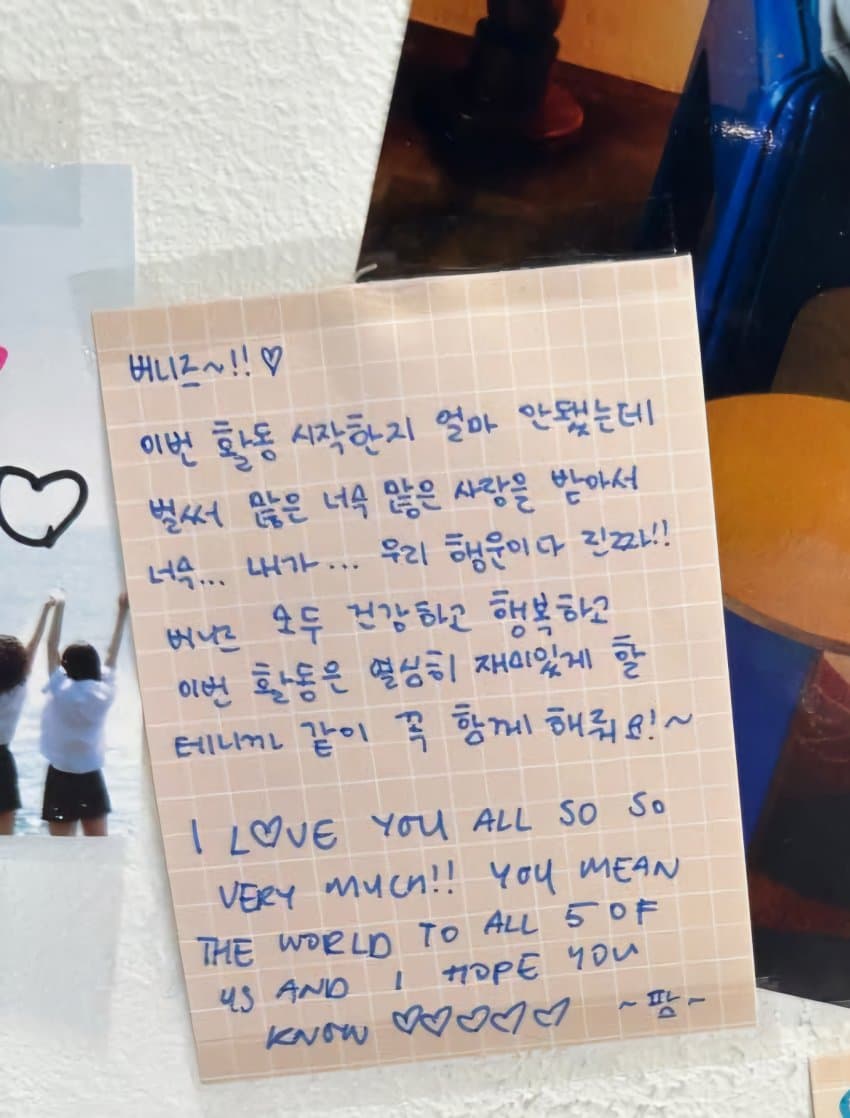 버니즈~!! ♡
이번 활동 시작한지 얼마 안됐는데
벌써 많은 너무 많은 사랑을 받아서
너무... 내가... 우리 행운이다 진짜!!
버니즈 모두 건강하고 행복하고
이번 활동은 열심히 재미있게 할
테니까 같이 꼭 함께 해줘요!~
I L♡VE YOU ALL SO SO
VERY MUCH!! YOU MEAN
THE WORLD TO ALL 5 OF
US AND I HOPE YOU
KNOW ♡♡♡♡♡ ~팜~